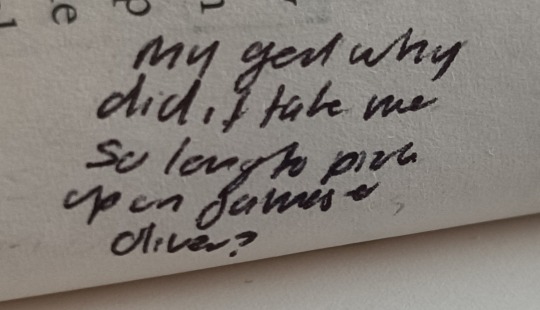 My god why
did it take me
so long to pick
up on James +
Oliver?